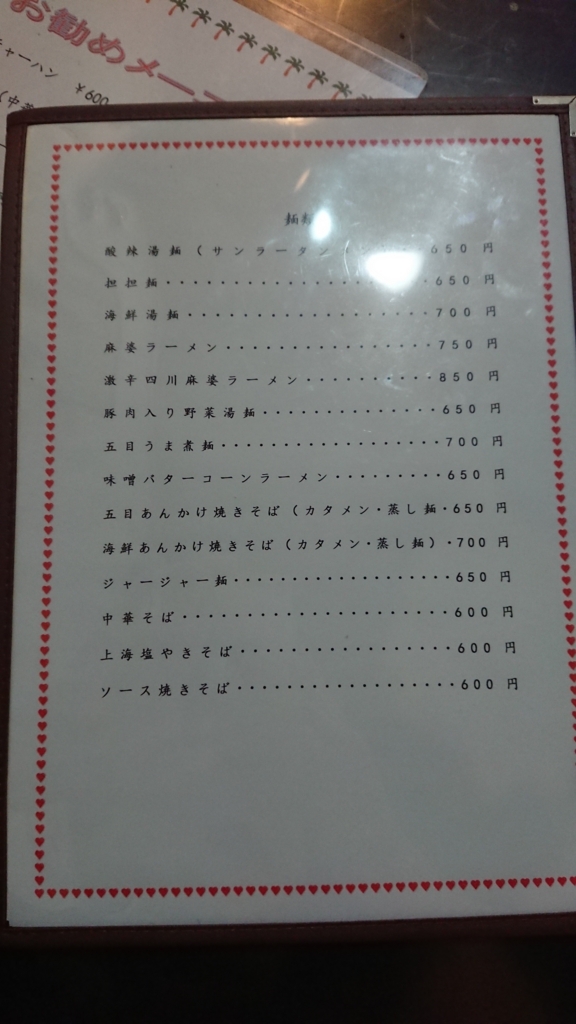 お勧めメー
チャーハン ￥600
(中華
麺類
酸辣湯麺(サンラータン 650 円
担担麺・・・・・・・・・・・・・・・・・・・・650 円
海鮮湯麺・・・・・・・・・・・・・・・・・・・700 円
麻婆ラーメン・・・・・・・・・・・・・・・・750 円
激辛四川麻婆ラーメン・・・・・・・・・・850 円
豚肉入り野菜湯麺・・・・・・・・・・・・・・650 円
五目うま煮麺・・・・・・・・・・・・・・・・・700 円
味噌バターコーンラーメン・・・・・・・・・650 円
五目あんかけ焼きそば(カタメン・蒸し麺・650 円
海鮮あんかけ焼きそば(カタメン・蒸し麺)・700 円
ジャージャー麺・・・・・・・・・・・・・・・・・650 円
中華そば・・・・・・・・・・・・・・・・・・・・・600 円
上海塩やきそば・・・・・・・・・・・・・・・・・600 円
ソース焼きそば・・・・・・・・・・・・・・・・・600 円